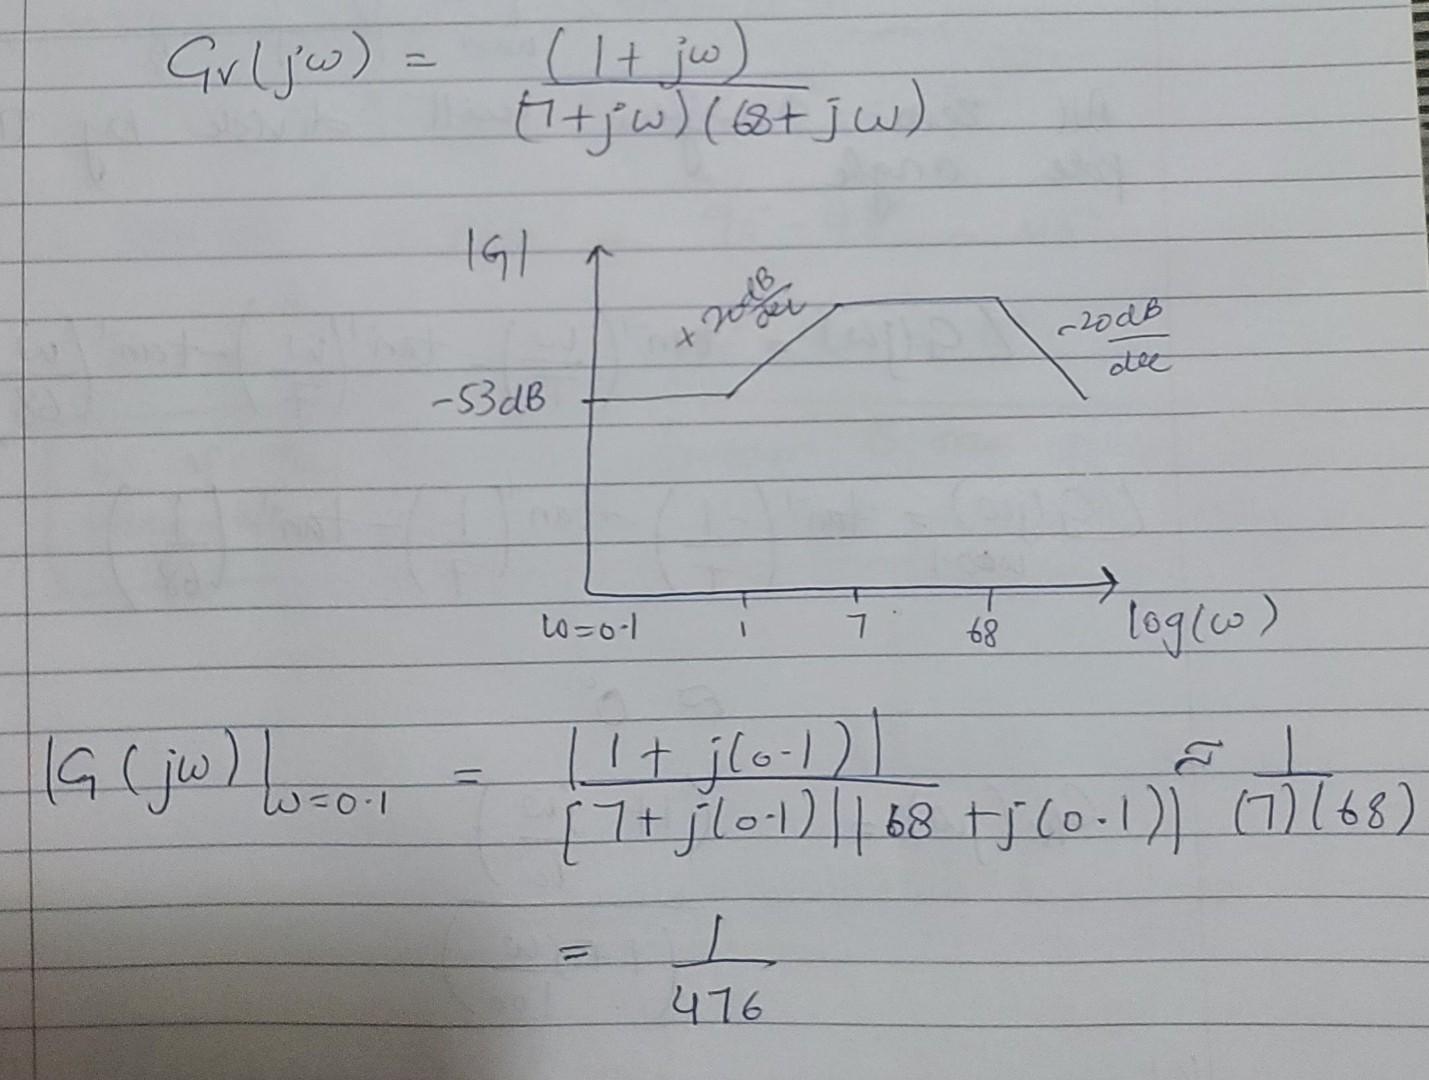 Gr(jω) = (1 + jω) / (7+jω)(68+jω)
|G|
+20 dB/dec
-20dB/dec
-53dB
ω=0.1 1 7 68 log(ω)
|G(jω)|ω=0.1 = |1 + j(0.1)| / |7+j(0.1)||68 +j(0.1)| ≈ 1/(7)(68)
= 1/476